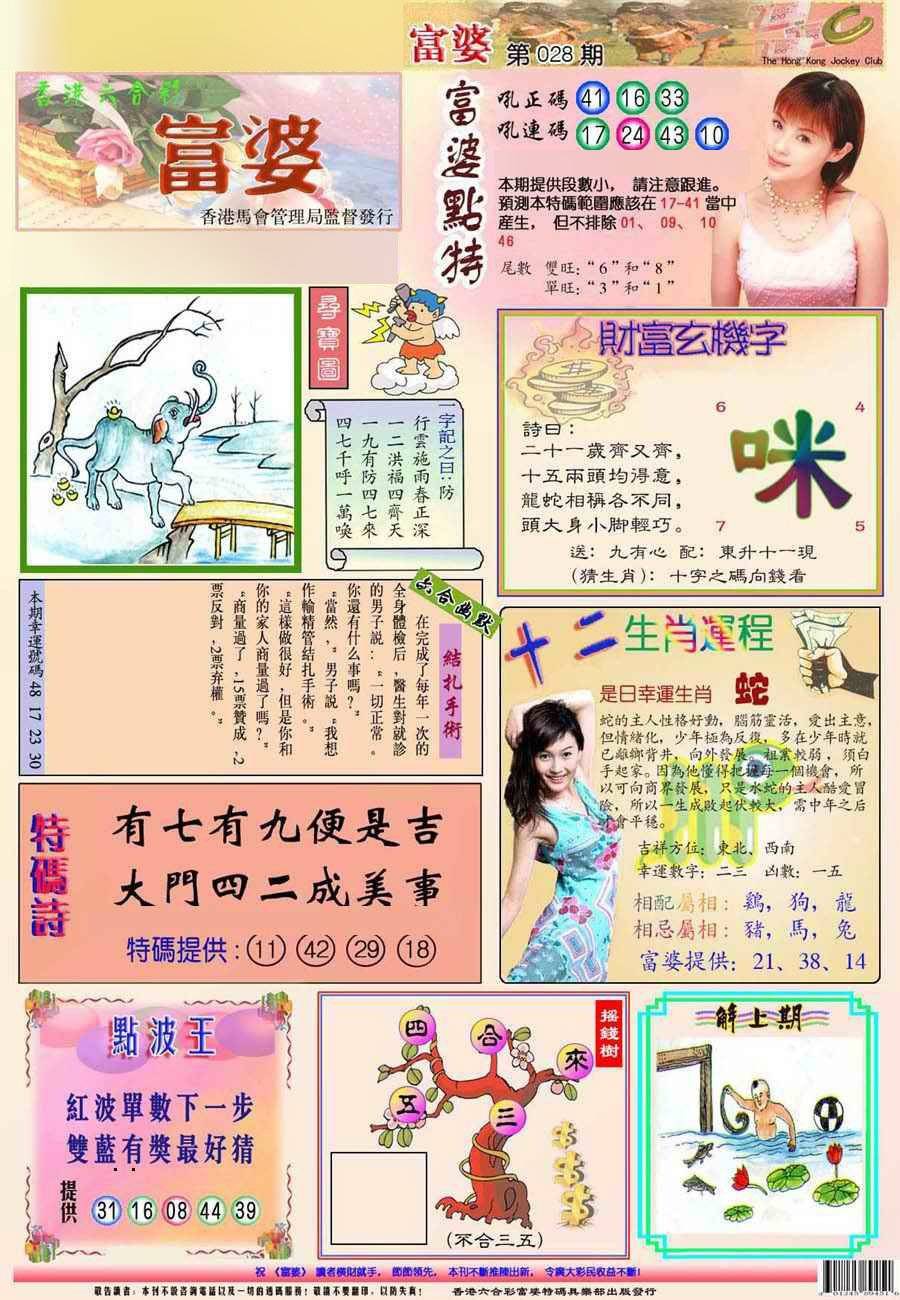 富婆 第028期
The Hong Kong Jockey Club
香港六合彩
富婆
香港馬會管理局監督發行
富婆點特
吼正碼 41 16 33
吼連碼 17 24 43 10
本期提供段數小， 請注意跟進。
預測本特碼範圍應該在17-41當中
産生， 但不排除01、 09、 10
46
尾數 雙旺:“6”和“8”
單旺:“3”和“1”
尋寶圖
一字記之曰:防
行雲施雨春正深
一二洪福四齊天
一九有防四七來
四七千呼一萬喚
財富玄機字
詩曰:
二十一歲齊又齊，
十五兩頭均得意，
龍蛇相稱各不同，
頭大身小脚輕巧。
6 4
咪
7 5
送: 九有心 配: 東升十一現
(猜生肖): 十字之碼向錢看
六合幽默
結扎手術
在完成了每年一次的
全身體檢后,醫生對就診
的男子説:“一切正常。
你還有什么事嗎?”
“當然,”男子説“我想
作輸精管結扎手術。”
“這樣做很好,但是你和
你的家人商量過了嗎?”
“商量過了,15票贊成,2
票反對,2票弃權。”
本期幸運號碼 48 17 23 30
十二生肖運程
是日幸運生肖 蛇
蛇的主人性格好動，腦筋靈活，愛出主意，
但情緒化，少年極為反復，多在少年時就
已離鄉背井，向外發展。祖業較弱，須白
手起家。因為他懂得把握每一個機會，所
以可向商界發展，只是水蛇的主人酷愛冒
險，所以一生成敗起伏較大，需中年之后
才會平穩。
吉祥方位：東北、西南
幸運數字：二三 凶數：一五
相配屬相：鷄，狗，龍
相忌屬相：豬，馬，兔
富婆提供：21、38、14
特碼詩
有七有九便是吉
大門四二成美事
特碼提供:11 42 29 18
點波王
紅波單數下一步
雙藍有獎最好猜
提供 31 16 08 44 39
搖錢樹
四 合 來
五 三
(不合三五)
解上期
祝《富婆》讀者橫財就手， 節節領先， 本刊不斷推陳出新， 令廣大彩民收益不斷!
敬告讀者: 本刊不設咨詢電話以及一切的透碼服務! 敬請不要翻印，以防失真! 香港六合彩富婆特碼俱樂部出版發行